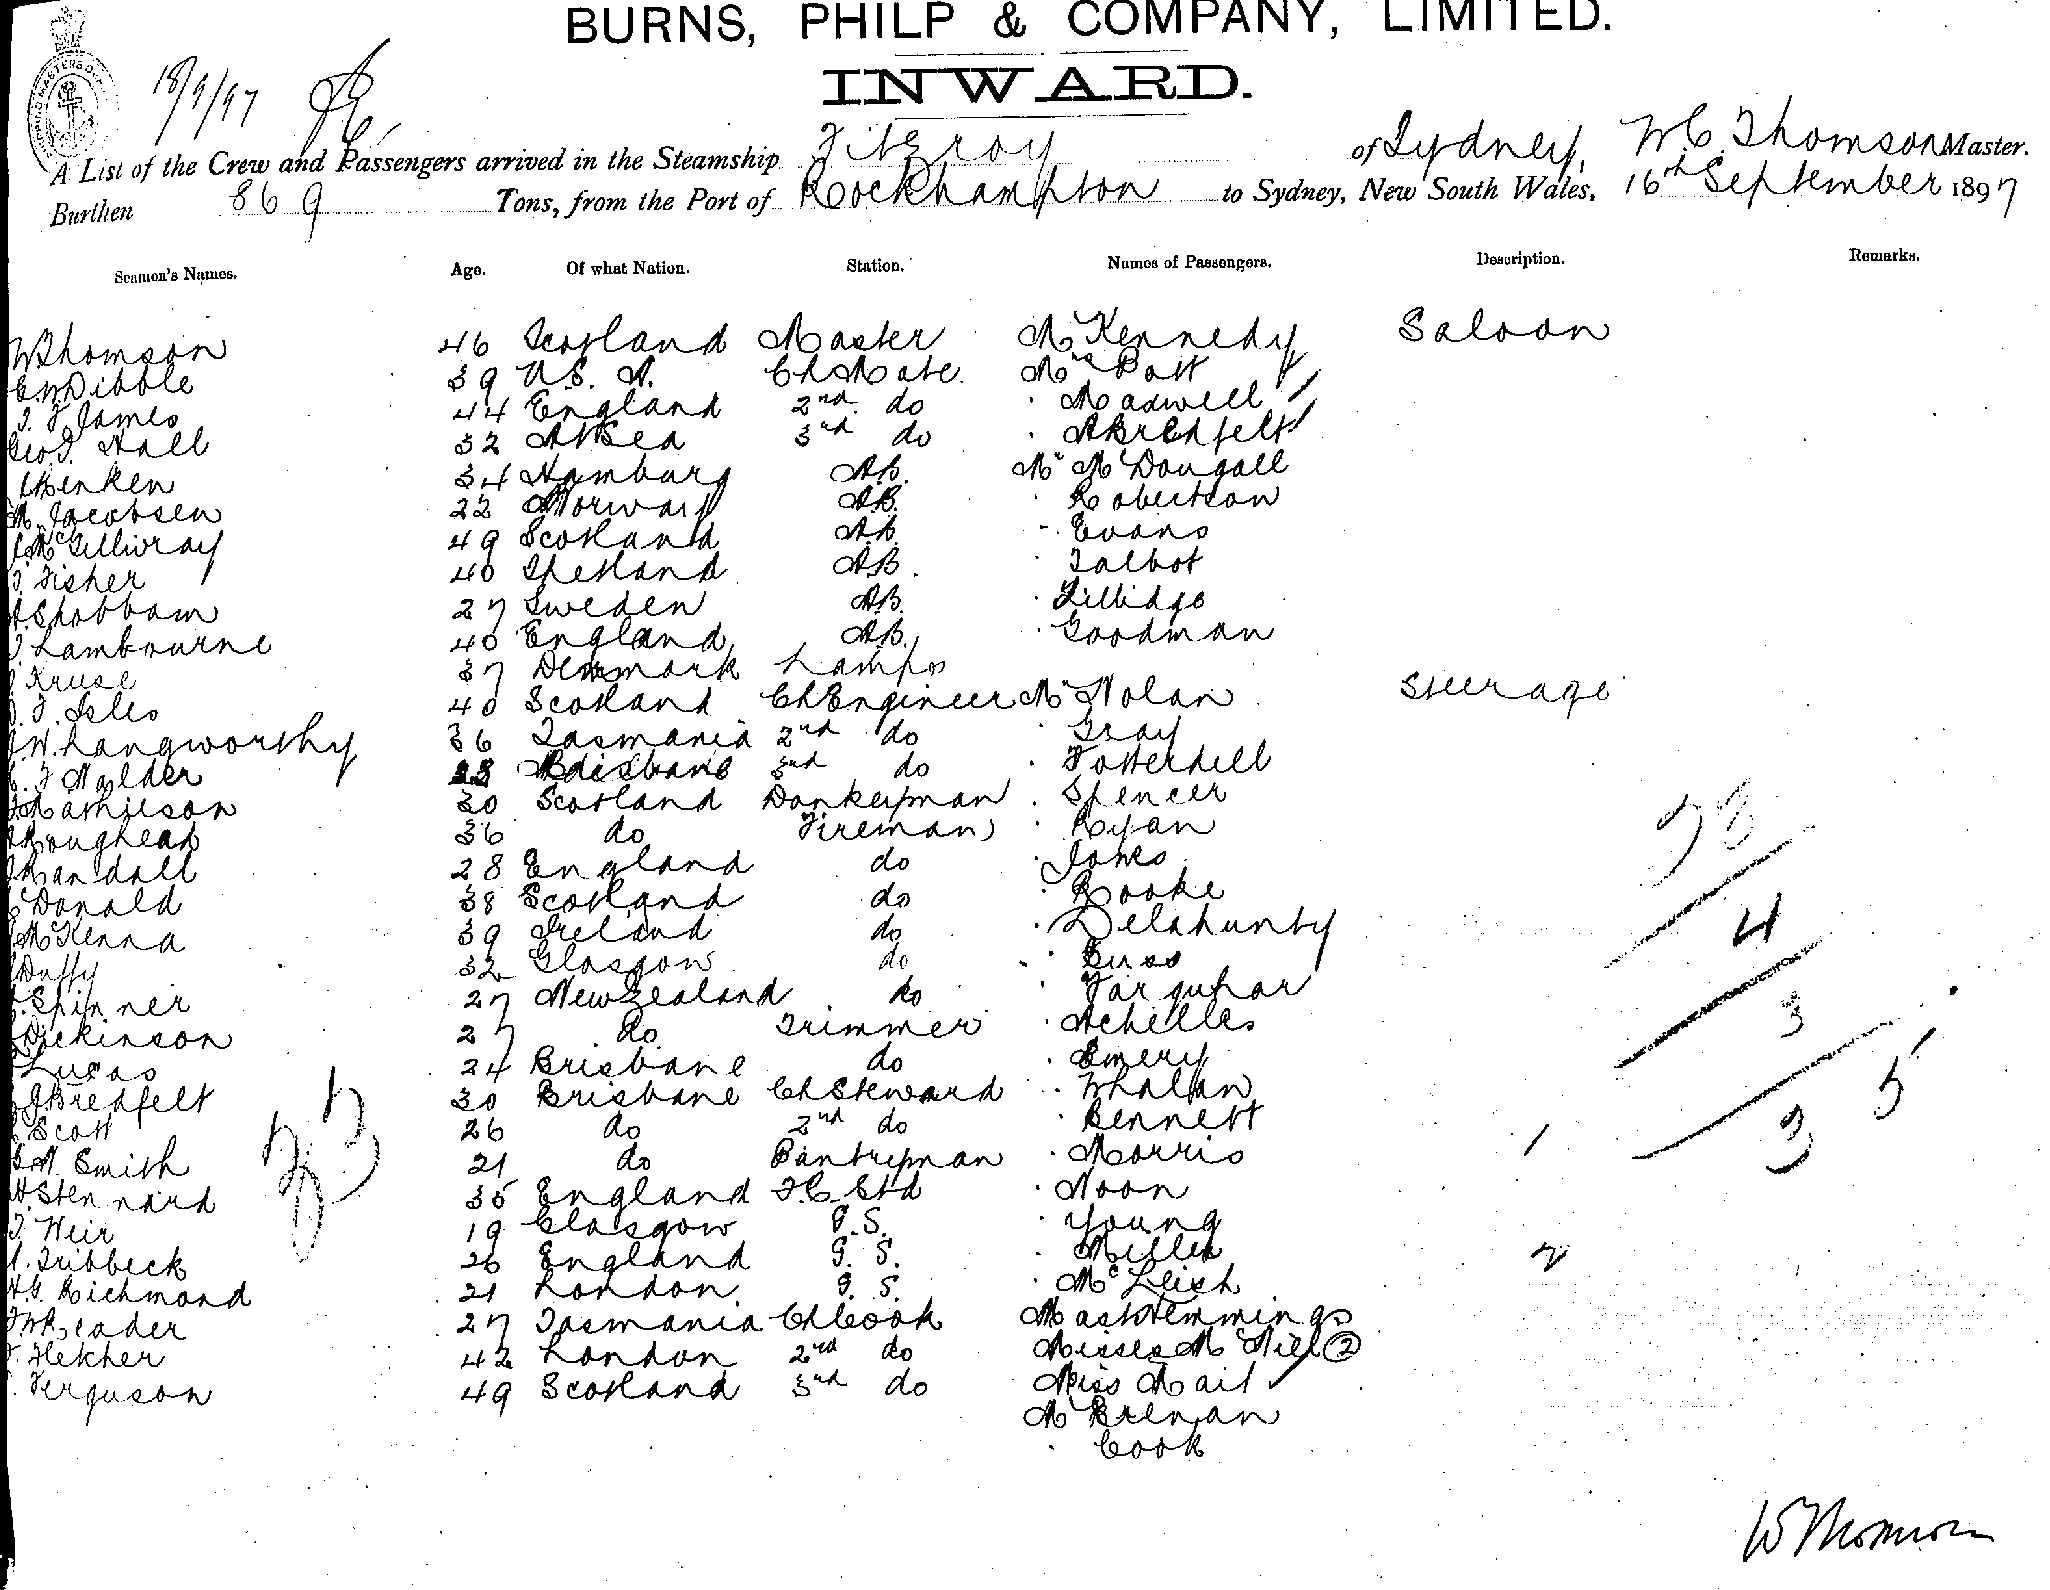 BURNS, PHILP & COMPANY, LIMITED.
INWARD.
18/9/97
A List of the Crew and Passengers arrived in the Steamship Fitzroy of Sydney, W C Thomson Master.
Burthen 869 Tons, from the Port of Rockhampton to Sydney, New South Wales, 16th September 1897
Seamen's Names. Age. Of what Nation. Station. Names of Passengers. Description. Remarks.
W Thomson 46 Scotland Master Mr Kennedy Saloon
C W Dibble 39 U.S. A. Ch Mate. Mrs Bott
T. F. James 44 England 2nd do " Maxwell
Geo T. Hall 32 At Sea 3rd do " A Bredfelt
Menken 34 Hamburg AB. Mr McDougall
M. Jacobsen 22 Norway AB. " Robertson
McGillivray 49 Scotland AB. " Evans
Fisher 40 Shetland AB. " Talbot
Shabbam 27 Sweden AB. " Lillidge
Lambourne 40 England AB. " Goodman
Kruse 37 Denmark Lamps
F. Isles 40 Scotland Ch Engineer Mr Nolan Steerage
W. Langworthy 36 Tasmania 2nd do " Gray
F Malder 28 Brisbane 3rd do " Totterdell
Mathieson 30 Scotland Donkeyman " Spencer
Roughead 36 do Fireman " Ryan
Randall 28 England do " Jones
Donald 38 Scotland do " Rooke
McKenna 39 Ireland do " Delahunty
Duffy 32 Glasgow do " Buss
Skinner 27 New Zealand do " Farquhar
Dickinson 27 do Trimmer " Achilles
Lucas 24 Brisbane do " Emery
J Bredfelt 30 Brisbane Ch Steward " Whalan
Scott 26 do 2nd do " Bennett
M Smith 21 do Pantryman " Morris 1
Stennard 35 England F.C. Std " Noon
Weir 19 Glasgow G.S. " Young
Tribbeck 26 England G. S. " Miller 2
Richmond 21 London G. S. " McLeish
Reader 27 Tasmania Ch Cook Mast Hemmings
Fletcher 42 London 2nd do Misses McNiel 2
Ferguson 49 Scotland 3rd do Miss Mail
Mr Brenan
" Cook
33
28
4
3
35
W Thomson